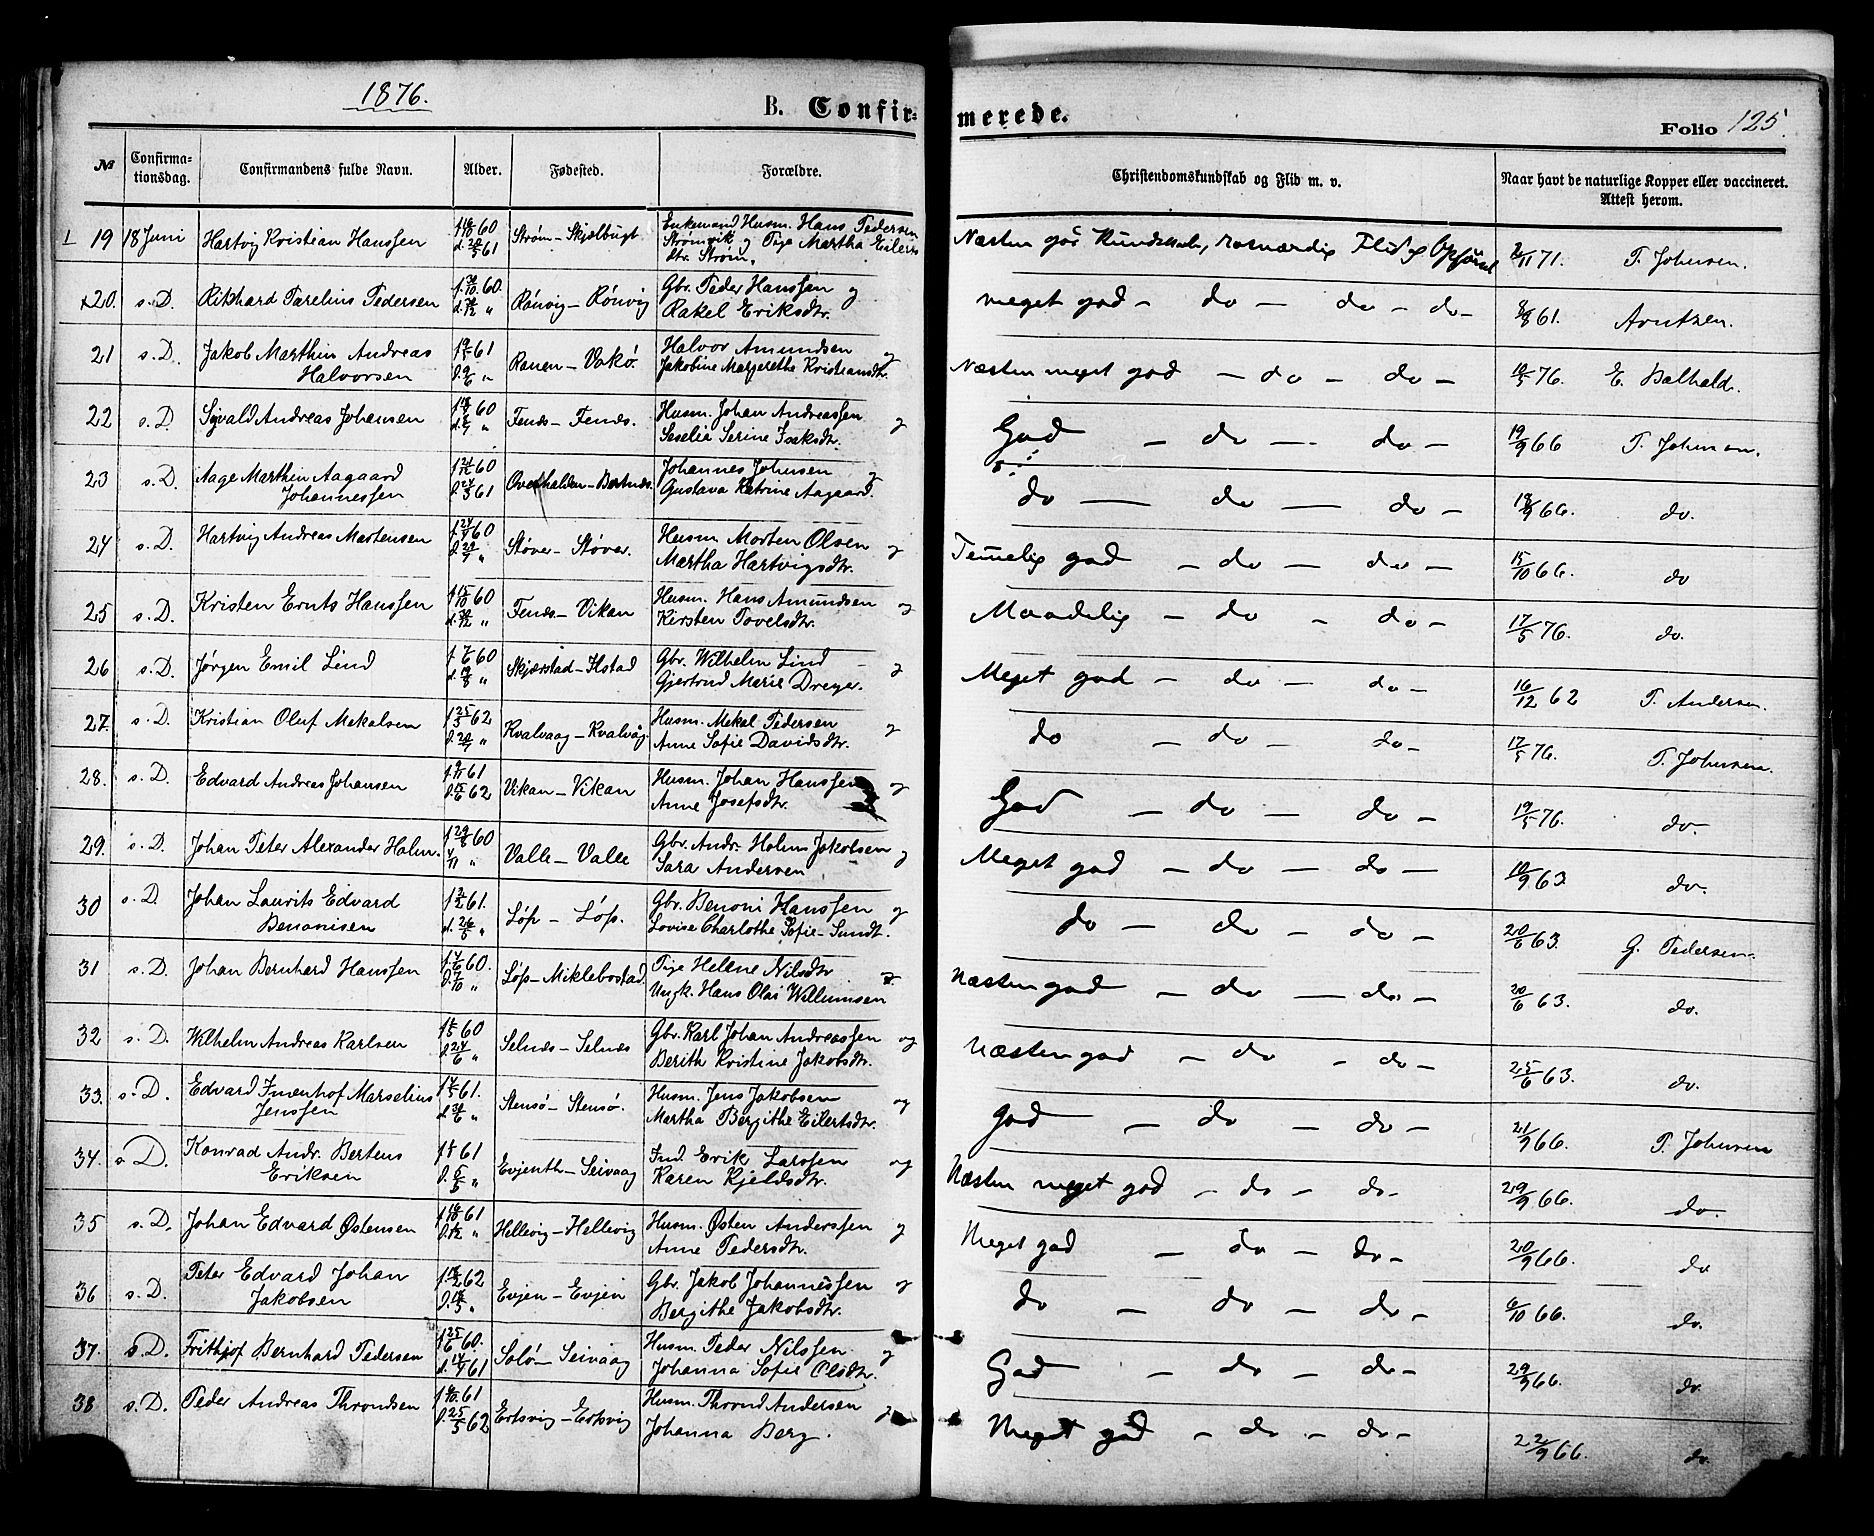 1876.
B. Confir=
merede.
Folio 125.
№ Confirma-tionsdag. Confirmandens fulde Navn. Alder. Fødested. Forældre. Christendomskundskab og Flid m. v. Naar havt de naturlige Kopper eller vaccineret. Attest herom.
19 18 Juni Hartvig Kristian Hanssen 60 61 Strøm - Skjælbugt Enkemand Husm. Hans Pedersen Strømvik og Pige Martha Eilerts dtr. Strøm. Næsten god Kundskab, rosværdig Flid og Opførsel 71. T. Johnsen.
20. s. D. Rikhard Parelius Pedersen 60. Rønvig - Rønvig Gbr. Peder Hanssen og Rakel Eriksdtr. meget god - do - do - do - 61. Arntzen.
21 s. D. Jakob Marthin Andreas Halvorsen 61 Ranen - Vakø. Halvor Amundsen og Jakobine Margrethe Kristiansdtr. Næsten meget god - do - do - 76. E.
22 s. D. Sigvald Andreas Johansen 60 Fenæs - Fenæs. Husm. Johan Andreassen og Serine Isaksdtr. God - do - do - 19/9 66 T. Johnsen.
23 s. D. Aage Marthin Aagaard Johannessen 60 61 Overhalden - Bertnæs. Johannes Johnsen og Gustava Katrine Aagaard. do - do - do - 18/9 66. do.
24 s. D. Hartvig Andreas Mortensen 60 Støver - Støver. Husm Morten Olsen og Martha Hartvigsdtr. Temmelig god - do - do - 15/10 66. do
25 s. D. Kristen Ernts Hanssen 60 Fenæs - Vikan Husm. Hans Amundsen og Kirsten Povelsdtr. Maadelig - do - do - 17/5 76. do.
26 s. D. Jørgen Emil Lind 60 Skjærstad - Ilstad Gbr. Wilhelm Lind - og Gjertrud Marie Dreyer. Meget god - do - do - 16/12 62 P. Andersen.
27. s. D. Kristian Oluf Mekalsen 62 Kvalvaag - Kvalvåg. Husm. Mekal Pedersen og Anne Sofie Davidsdtr. do - do - do - 17/5 76. T. Johnsen.
28. s. D. Edvard Andreas Johansen 61 62 Vikan - Vikan Husm. Johan Hanssen og Anne Josefsdtr. God - do - do - 19/5 76. do.
29. s. D. Johan Peter Alexander Holm. 60 Valle - Valle Gbr. Andr. Holm Jakobsen og Sara Andersen. Meget god - do - do - 63 do.
30 s. D. Johan Laurits Edvard Benonisen 61. Løp - Løp. Gbr. Benoni Hanssen og Lovise Charlothe Sofie Sundt. do - do - do - 20/6 63. G. Pedersen.
31 s. D. Johan Bernhard Hanssen 60. Løp - Miklebostad. Pige Helene Nilsdtr og Ungk. Hans Olai Willumsen Næsten god - do - do - 20/6 63. do.
32 s. D. Wilhelm Andreas Karlsen 60 Selnæs - Selnæs Gbr. Karl Johan Andreassen og Berith Kristine Jakobsdtr. Næsten god - do - do - 25/6 63. do.
33. s. D. Edvard Imenhof Marselius Jenssen 61. Stensø - Stensø. Husm. Jens Jakobsen og Martha Bergithe Eilertsdtr. God - do - do - 21/9 66. T. Johnsen
34. s. D. Konrad Andr. Berteus Eriksen 61 Evjenth - Seivaag Ind. Erik Larssen og Karen Kjeldsdtr. Næsten meget god - do - do - 29/9 66. do.
35 s. D. Johan Edvard Østensen 61 Hellevig - Hellevig Husm. Østen Anderssen og Anne Pedersdtr. Meget god - do - do - 20/9 66. do
36 s. D. Peter Edvard Johan Jakobsen 62 Evjen - Evjen Gbr. Jakob Johannessen og Bergithe Jakobsdtr. do - do - do - 6/10 66. do.
37. s. D. Frithjof Bernhard Pedersen 60. 61 Solø - Seivaag Husm. Peder Nilssen og Johanna Sofie Olsdtr. God - do - do - 29/9 66. do.
38 s. D. Peder Andreas Throndsen 61 62 Ertsvig - Ertsvig Husm. Thrond Andersen og Johanna Berg. Meget god - do - do - 22/9 66. do.